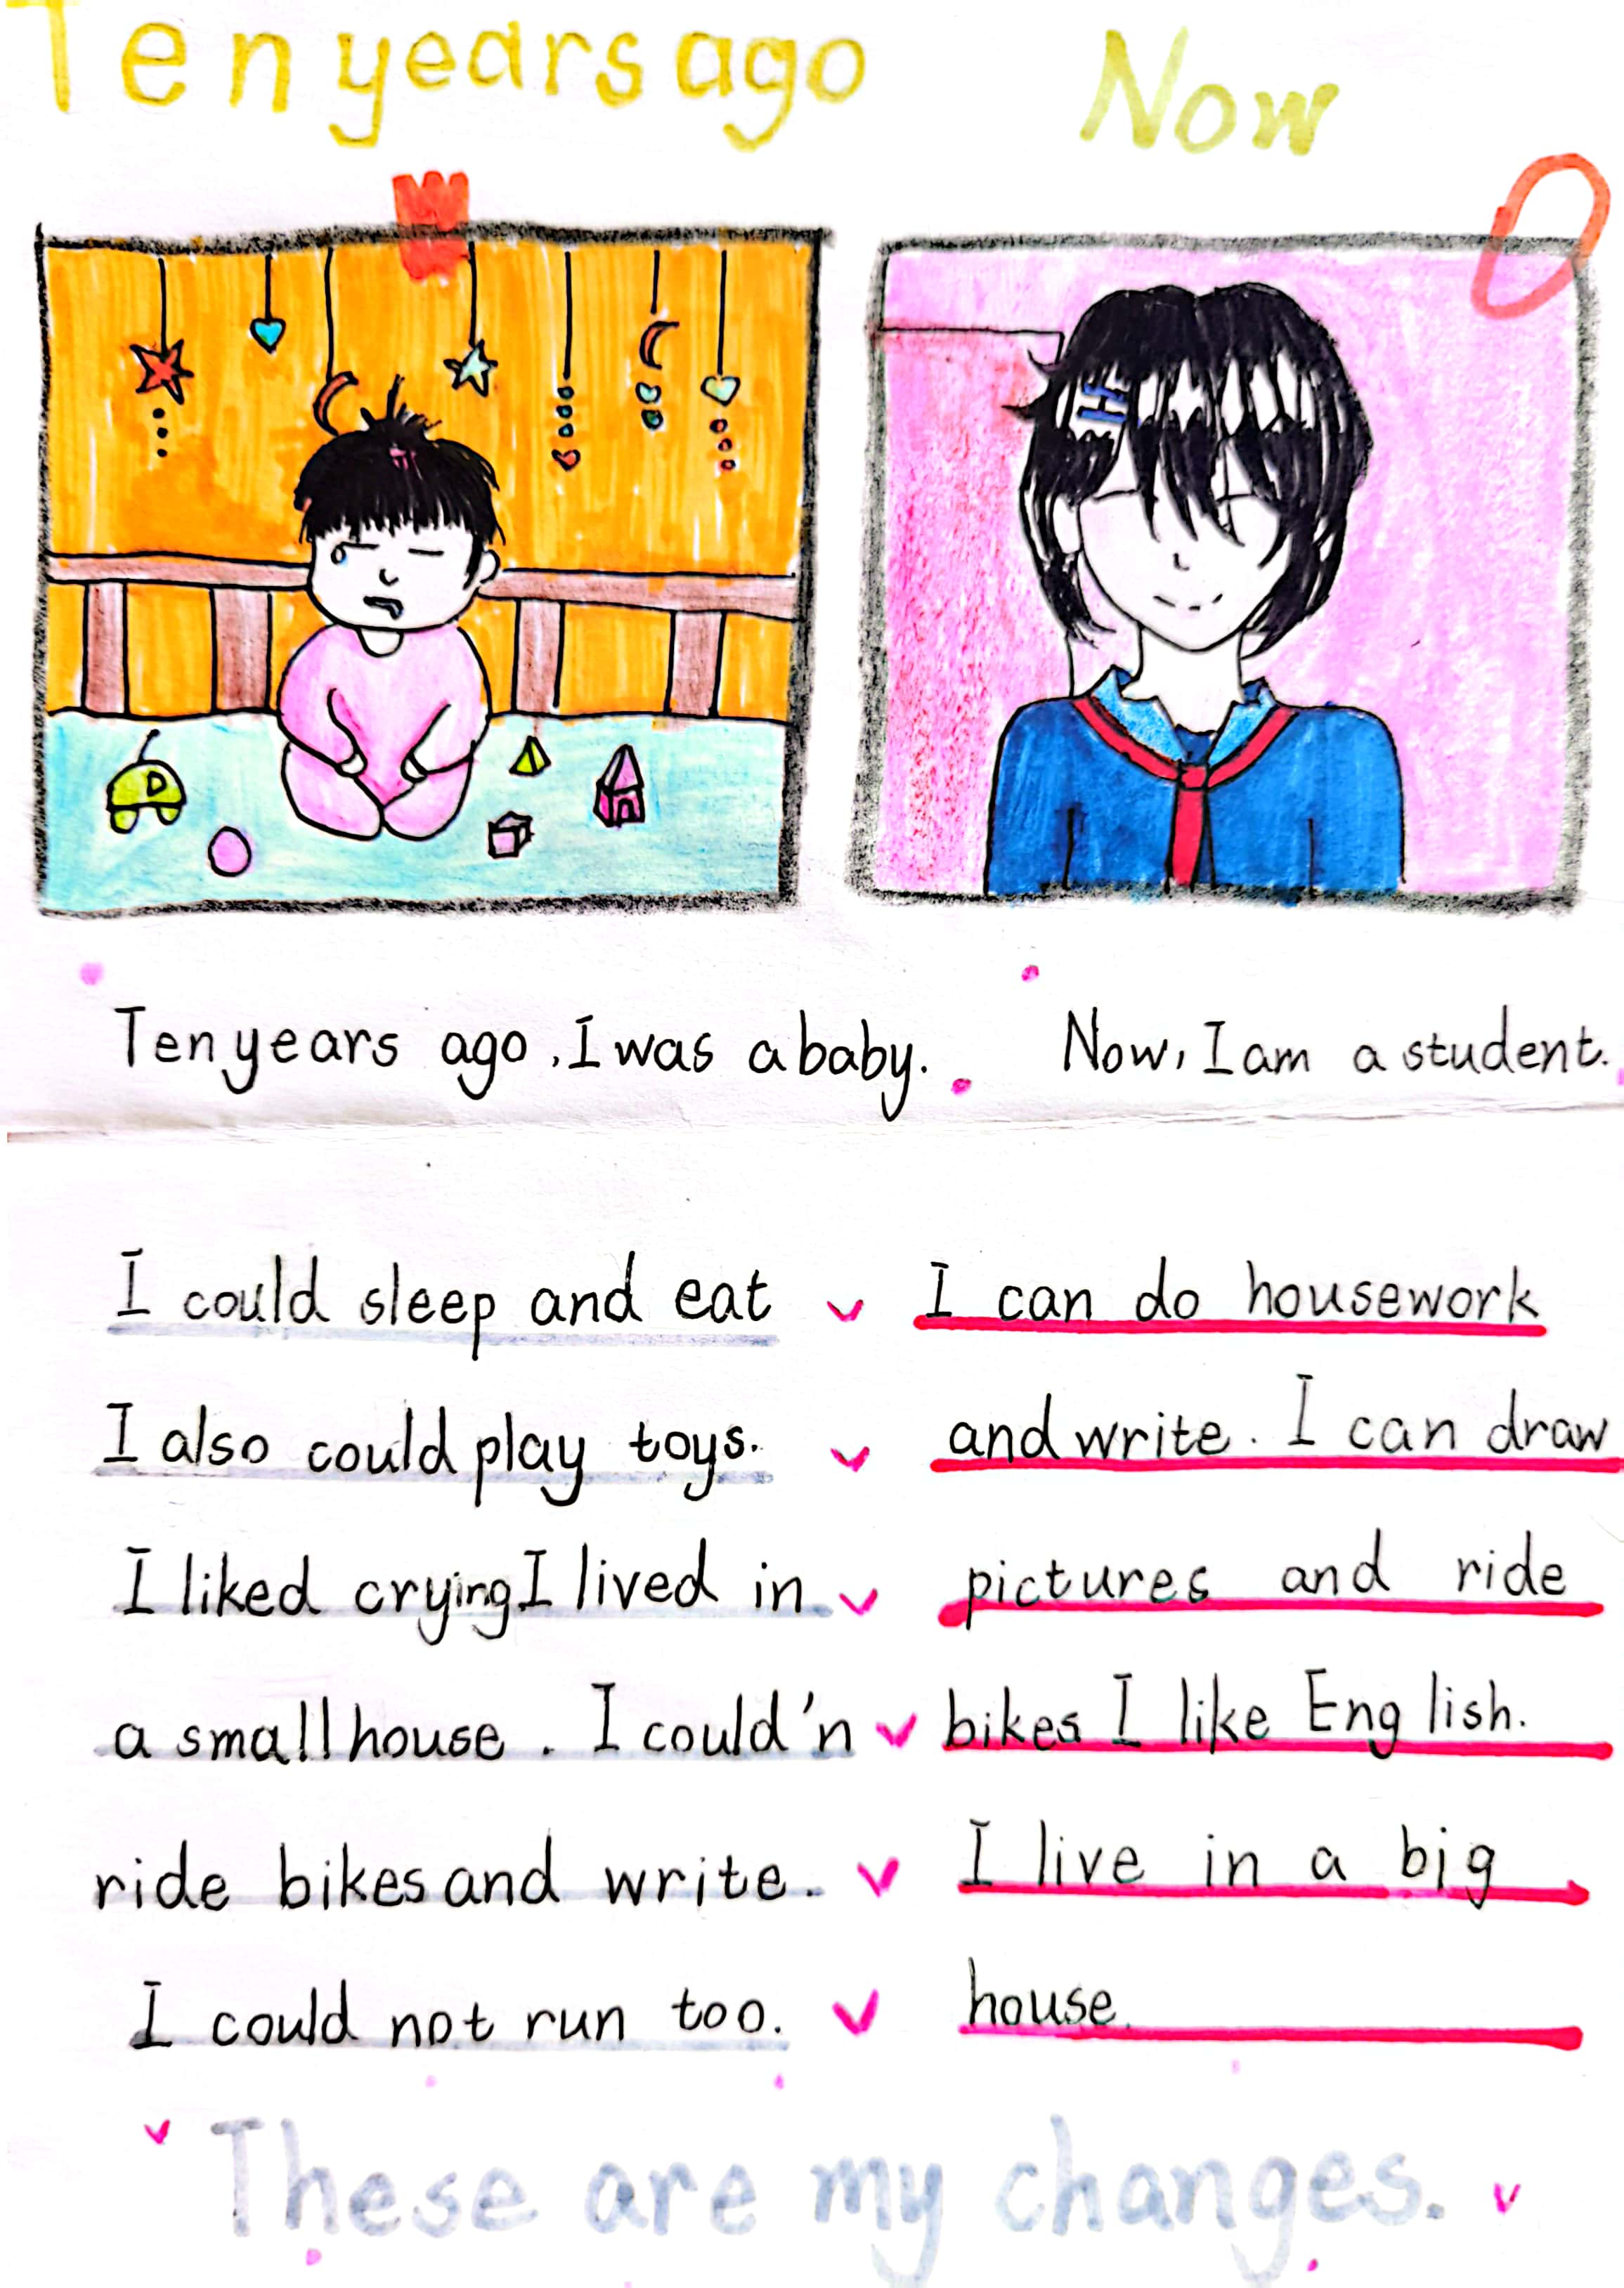 Ten years ago
Now
Ten years ago, I was a baby.
Now, I am a student.
I could sleep and eat
I also could play toys.
I liked crying I lived in
a small house. I could'n
ride bikes and write.
I could not run too.
I can do housework
and write. I can draw
pictures and ride
bikes I like English.
I live in a big
house.
These are my changes.